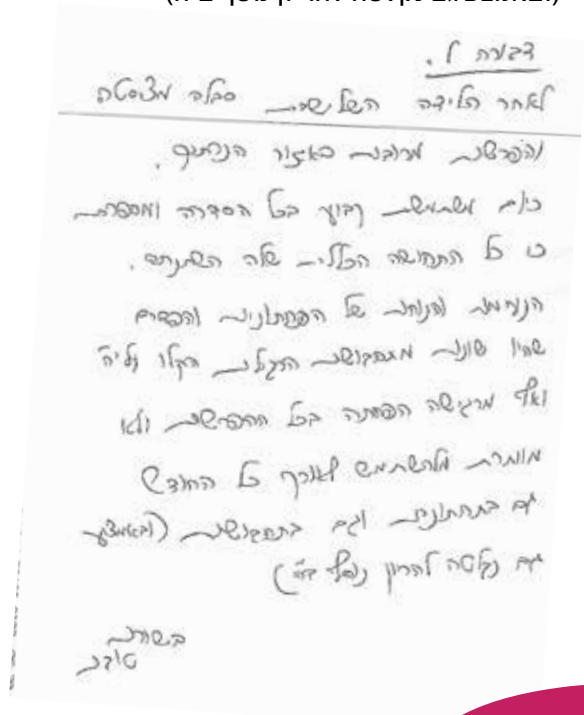 דבורה ל.
לאחר הלידה השלישית סבלה מציסטה
והפרשות מרובות באזור הנרתיק.
כיום משתמשת קבוע בכל הסדרה ומספרת
כי כל התחושה הכללית שלה השתנתה.
הנעימות והנוחות של התחתונים והפדים
שהיו שונות מתחבושות רגילות הקלו עליה
ואף מרגישה הפחתה בכל ההפרשות ולא
מוותרת מלהשתמש לאורך כל החודש
גם בתחתונים וגם בתחבושות (ובאמצע
גם נקלטה להריון נוסף ב"ה)
בשורות
טובות